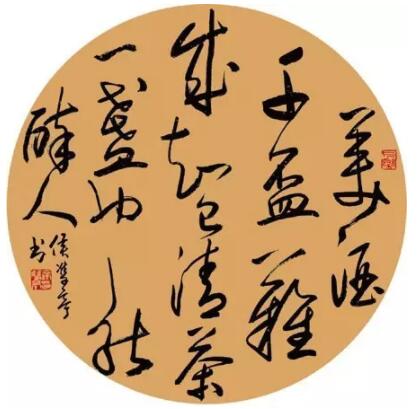 美酒
千盃難
成知己清茶
一盞也能
醉人